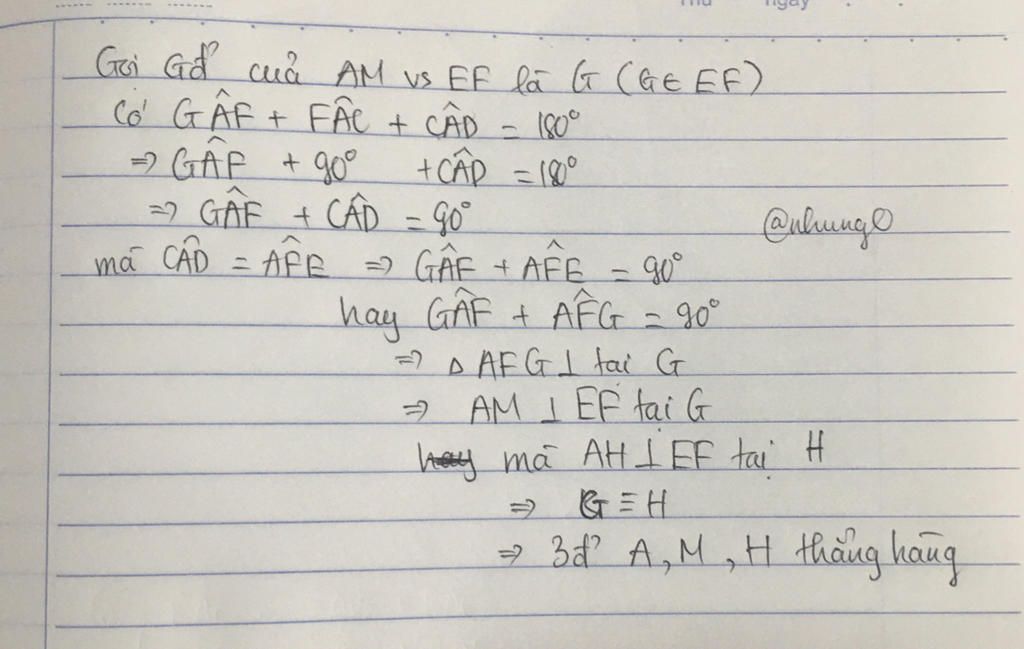 Thứ ngày
Gọi Gđ² của AM vs EF là G (G ∈ EF)
Có GÂF + FÂC + CÂD = 180°
⇒ GÂF + 90° + CÂD = 180°
⇒ GÂF + CÂD = 90°
@nhung
mà CÂD = AF̂E ⇒ GÂF + AF̂E = 90°
hay GÂF + AF̂G = 90°
⇒ △ AFG ⊥ tại G
⇒ AM ⊥ EF tại G
mà AH ⊥ EF tại H
⇒ G ≡ H
⇒ 3đ² A, M, H thẳng hàng